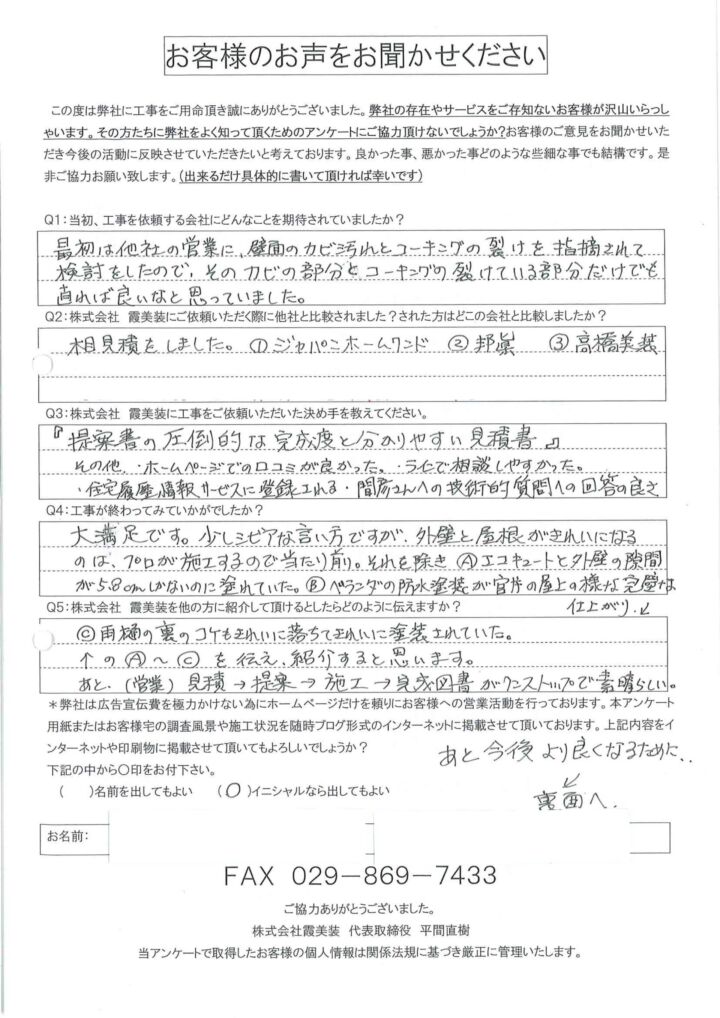 お客様のお声をお聞かせください
この度は弊社に工事をご用命頂き誠にありがとうございました。弊社の存在やサービスをご存知ないお客様が沢山いらっし
ゃいます。その方たちに弊社をよく知って頂くためのアンケートにご協力頂けないでしょうか?お客様のご意見をお聞かせいた
だき今後の活動に反映させていただきたいと考えております。良かった事、悪かった事どのような些細な事でも結構です。是
非ご協力お願い致します。(出来るだけ具体的に書いて頂ければ幸いです)
Q1:当初、工事を依頼する会社にどんなことを期待されていましたか?
最初は他社の営業に、壁面のカビ汚れとコーキングの裂けを指摘されて
検討をしたので、そのカビの部分とコーキングの裂けている部分だけでも
直れば良いなと思っていました。
Q2:株式会社 霞美装にご依頼いただく際に他社と比較されました?された方はどこの会社と比較しましたか?
相見積をしました。 ① ジャパンホームワンド ② 邦巣 ③ 高橋美装
Q3:株式会社 霞美装に工事をご依頼いただいた決め手を教えてください。
『提案書の圧倒的な完成度と分かりやすい見積書』
その他 ・ホームページでの口コミが良かった。・ラインで相談しやすかった。
・住宅履歴情報サービスに登録される・間彦さんへの技術的質問への回答の良さ
Q4:工事が終わってみていかがでしたか?
大満足です。少しシビアな言い方ですが、外壁と屋根がきれいになる
のは、プロが施工するので当たり前。それを除き Ⓐエコキュートと外壁の隙間
が5.8cmしかないのに塗れていた。Ⓑベランダの防水塗装が官庁の屋上の様な完璧な
仕上がり。↙
Q5:株式会社 霞美装を他の方に紹介して頂けるとしたらどのように伝えますか?
Ⓒ雨樋の裏のコケもきれいに落ちてきれいに塗装されていた。
↑のⒶ〜Ⓒを伝え、紹介すると思います。
あと、(営業)見積→提案→施工→完成図書がワンストップで素晴らしい。
*弊社は広告宣伝費を極力かけない為にホームページだけを頼りにお客様への営業活動を行っております。本アンケート
用紙またはお客様宅の調査風景や施工状況を随時ブログ形式のインターネットに掲載させて頂いております。上記内容をイ
ンターネットや印刷物に掲載させて頂いてもよろしいでしょうか?
下記の中から○印をお付下さい。
あと今後より良くなるために、、
↙
裏面へ.
( )名前を出してもよい (○)イニシャルなら出してもよい
お名前:
FAX 029-869-7433
ご協力ありがとうございました。
株式会社霞美装 代表取締役 平間直樹
当アンケートで取得したお客様の個人情報は関係法規に基づき厳正に管理いたします。